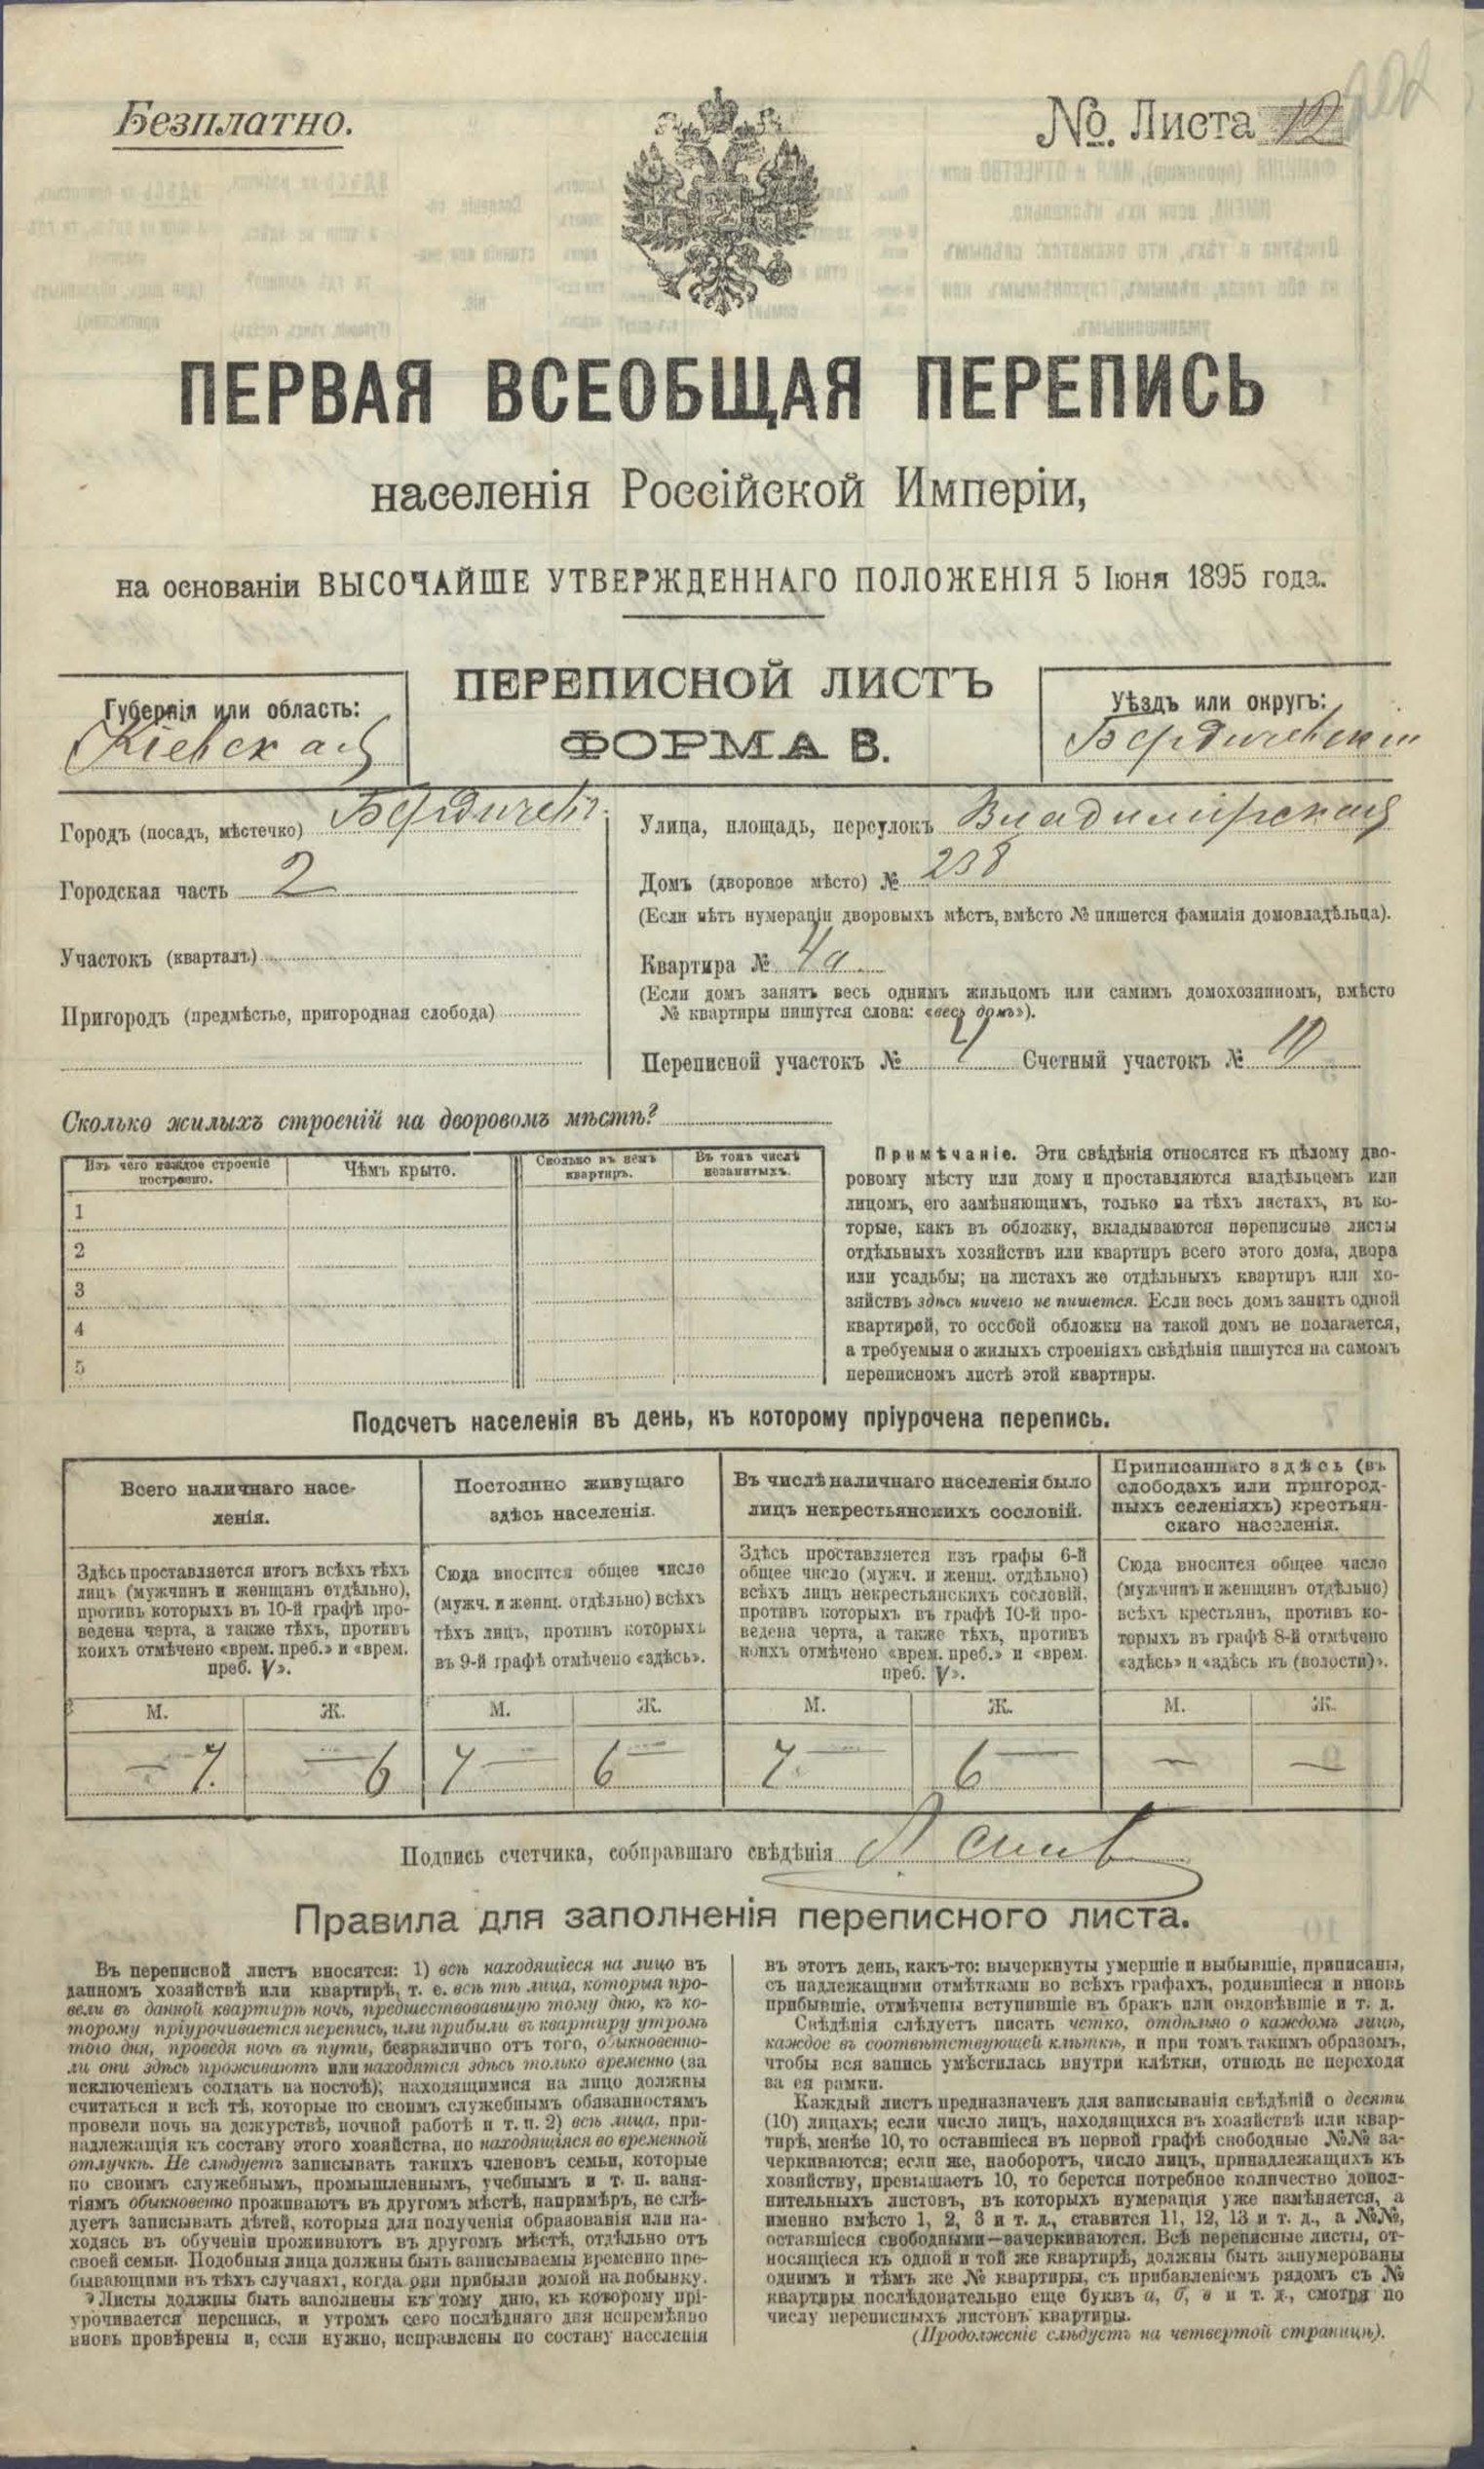 Безплатно.
№ Листа 12
ПЕРВАЯ ВСЕОБЩАЯ ПЕРЕПИСЬ
населенія Россійской Имперіи,
на основаніи ВЫСОЧАЙШЕ УТВЕРЖДЕННАГО ПОЛОЖЕНІЯ 5 Іюня 1895 года.
ПЕРЕПИСНОЙ ЛИСТЪ
ФОРМА В.
Губернія или область:
Кіевская
Уѣздъ или округъ:
Бердичевскій
Городъ (посадъ, мѣстечко) Бердичевъ
Городская часть 2
Участокъ (кварталъ)
Пригородъ (предмѣстье, пригородная слобода)
Улица, площадь, переулокъ Владимірская
Домъ (дворовое мѣсто) № 238
(Если нѣтъ нумераціи дворовыхъ мѣстъ, вмѣсто № пишется фамилія домовладѣльца).
Квартира № 4а
(Если домъ занятъ весь однимъ жильцомъ или самимъ домохозяиномъ, вмѣсто
№ квартиры пишутся слова: «весь домъ»).
Переписной участокъ № 4 Счетный участокъ № 10
Сколько жилыхъ строеній на дворовомъ мѣстѣ?
Изъ чего каждое строеніе построено.
Чѣмъ крыто.
Сколько въ немъ квартиръ.
Въ томъ числѣ незанятыхъ.
1
2
3
4
5
Примѣчаніе. Эти свѣдѣнія относятся къ цѣлому дво-
ровому мѣсту или дому и проставляются владѣльцемъ или
лицомъ, его замѣняющимъ, только на тѣхъ листахъ, въ ко-
торые, какъ въ обложку, вкладываются переписные листы
отдѣльныхъ хозяйствъ или квартиръ всего этого дома, двора
или усадьбы; на листахъ же отдѣльныхъ квартиръ или хо-
зяйствъ здѣсь ничего не пишется. Если весь домъ занятъ одной
квартирой, то особой обложки на такой домъ не полагается,
а требуемыя о жилыхъ строеніяхъ свѣдѣнія пишутся на самомъ
переписномъ листѣ этой квартиры.
Подсчетъ населенія въ день, къ которому пріурочена перепись.
Всего наличнаго насе-
ленія.
Постоянно живущаго
здѣсь населенія.
Въ числѣ наличнаго населенія было
лицъ некрестьянскихъ сословій.
Приписаннаго здѣсь (въ
слободахъ или пригород-
ныхъ селеніяхъ) крестьян-
скаго населенія.
Здѣсь проставляется итогъ всѣхъ тѣхъ
лицъ (мужчинъ и женщинъ отдѣльно),
противъ которыхъ въ 10-й графѣ про-
ведена черта, а также тѣхъ, противъ
коихъ отмѣчено «врем. преб.» и «врем.
преб. V».
Сюда вносится общее число
(мужч. и женщ. отдѣльно) всѣхъ
тѣхъ лицъ, противъ которыхъ
въ 9-й графѣ отмѣчено «здѣсь».
Здѣсь проставляется изъ графы 6-й
общее число (мужч. и женщ. отдѣльно)
всѣхъ лицъ некрестьянскихъ сословій,
противъ которыхъ въ графѣ 10-й про-
ведена черта, а также тѣхъ, противъ
коихъ отмѣчено «врем. преб.» и «врем.
преб. V».
Сюда вносится общее число
(мужчинъ и женщинъ отдѣльно)
всѣхъ крестьянъ, противъ ко-
торыхъ въ графѣ 8-й отмѣчено
«здѣсь» и «здѣсь къ (волости)».
М. Ж. М. Ж. М. Ж. М. Ж.
— 7. — 6 7 — 6 — 7 — 6 — — —
Подпись счетчика, собиравшаго свѣдѣнія
Правила для заполненія переписного листа.
Въ переписной листъ вносятся: 1) всѣ находящіеся на лицо въ
данномъ хозяйствѣ или квартирѣ, т. е. всѣ тѣ лица, которыя про-
вели въ данной квартирѣ ночь, предшествовавшую тому дню, къ ко-
торому пріурочивается перепись, или прибыли въ квартиру утромъ
того дня, проведя ночь въ пути, безразлично отъ того, обыкновенно-
ли они здѣсь проживаютъ или находятся здѣсь только временно (за
исключеніемъ солдатъ на постоѣ); находящимися на лицо должны
считаться и всѣ тѣ, которые по своимъ служебнымъ обязанностямъ
провели ночь на дежурствѣ, ночной работѣ и т. п. 2) всѣ лица, при-
надлежащія къ составу этого хозяйства, но находящіяся во временной
отлучкѣ. Не слѣдуетъ записывать такихъ членовъ семьи, которые
по своимъ служебнымъ, промышленнымъ, учебнымъ и т. п. заня-
тіямъ обыкновенно проживаютъ въ другомъ мѣстѣ, напримѣръ, не слѣ-
дуетъ записывать дѣтей, которыя для полученія образованія или на-
ходясь въ обученіи проживаютъ въ другомъ мѣстѣ, отдѣльно отъ
своей семьи. Подобныя лица должны быть записываемы временно пре-
бывающими въ тѣхъ случаяхъ, когда они прибыли домой на побывку.
Листы должны быть заполнены къ тому дню, къ которому прі-
урочивается перепись, и утромъ сего послѣдняго дня непремѣнно
вновь провѣрены и, если нужно, исправлены по составу населенія
въ этотъ день, какъ-то: вычеркнуты умершіе и выбывшіе, приписаны,
съ надлежащими отмѣтками во всѣхъ графахъ, родившіеся и вновь
прибывшіе, отмѣчены вступившіе въ бракъ или овдовѣвшіе и т. д.
Свѣдѣнія слѣдуетъ писать четко, отдѣльно о каждомъ лицѣ,
каждое въ соотвѣтствующей клѣткѣ, и при томъ такимъ образомъ,
чтобы вся запись умѣстилась внутри клѣтки, отнюдь не переходя
за ея рамки.
Каждый листъ предназначенъ для записыванія свѣдѣній о десяти
(10) лицахъ; если число лицъ, находящихся въ хозяйствѣ или квар-
тирѣ, менѣе 10, то оставшіеся въ первой графѣ свободные №№ за-
черкиваются; если же, наоборотъ, число лицъ, принадлежащихъ къ
хозяйству, превышаетъ 10, то берется потребное количество допол-
нительныхъ листовъ, въ которыхъ нумерація уже измѣняется, а
именно вмѣсто 1, 2, 3 и т. д., ставится 11, 12, 13 и т. д., а №№,
оставшіеся свободными—зачеркиваются. Всѣ переписные листы, от-
носящіеся къ одной и той же квартирѣ, должны быть занумерованы
однимъ и тѣмъ же № квартиры, съ прибавленіемъ рядомъ съ №
квартиры послѣдовательно еще буквъ а, б, в и т. д., смотря по
числу переписныхъ листовъ квартиры.
(Продолженіе слѣдуетъ на четвертой страницѣ).